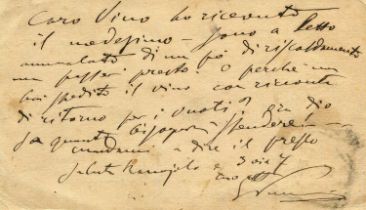 Caro Vino ho ricevuto
il medesimo – sono a letto
ammalato di un po' di riscaldamento
mi passerà presto. O perchè mi
hai spedito il vino con ricevuta
di ritorno per i vuoti? gia dio
sa quanto bisogna spendere!
mandami a dire il prezzo
Saluta